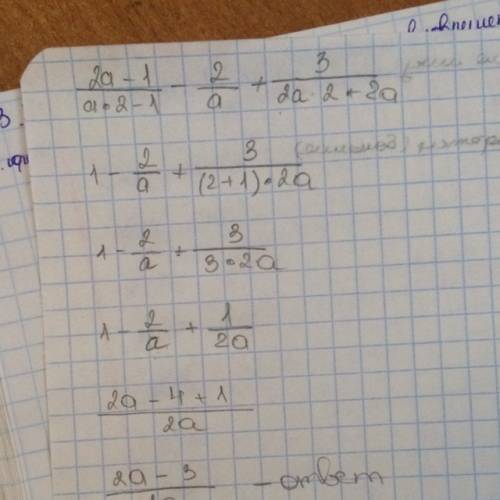 2a - 1 / a • 2 - 1 - 2 / a + 3 / 2a · 2 + 2a
1 - 2 / a + 3 / (2 + 1) • 2a
1 - 2 / a + 3 / 3 • 2a
1 - 2 / a + 1 / 2a
2a - 4 + 1 / 2a
2a - 3 - ответ